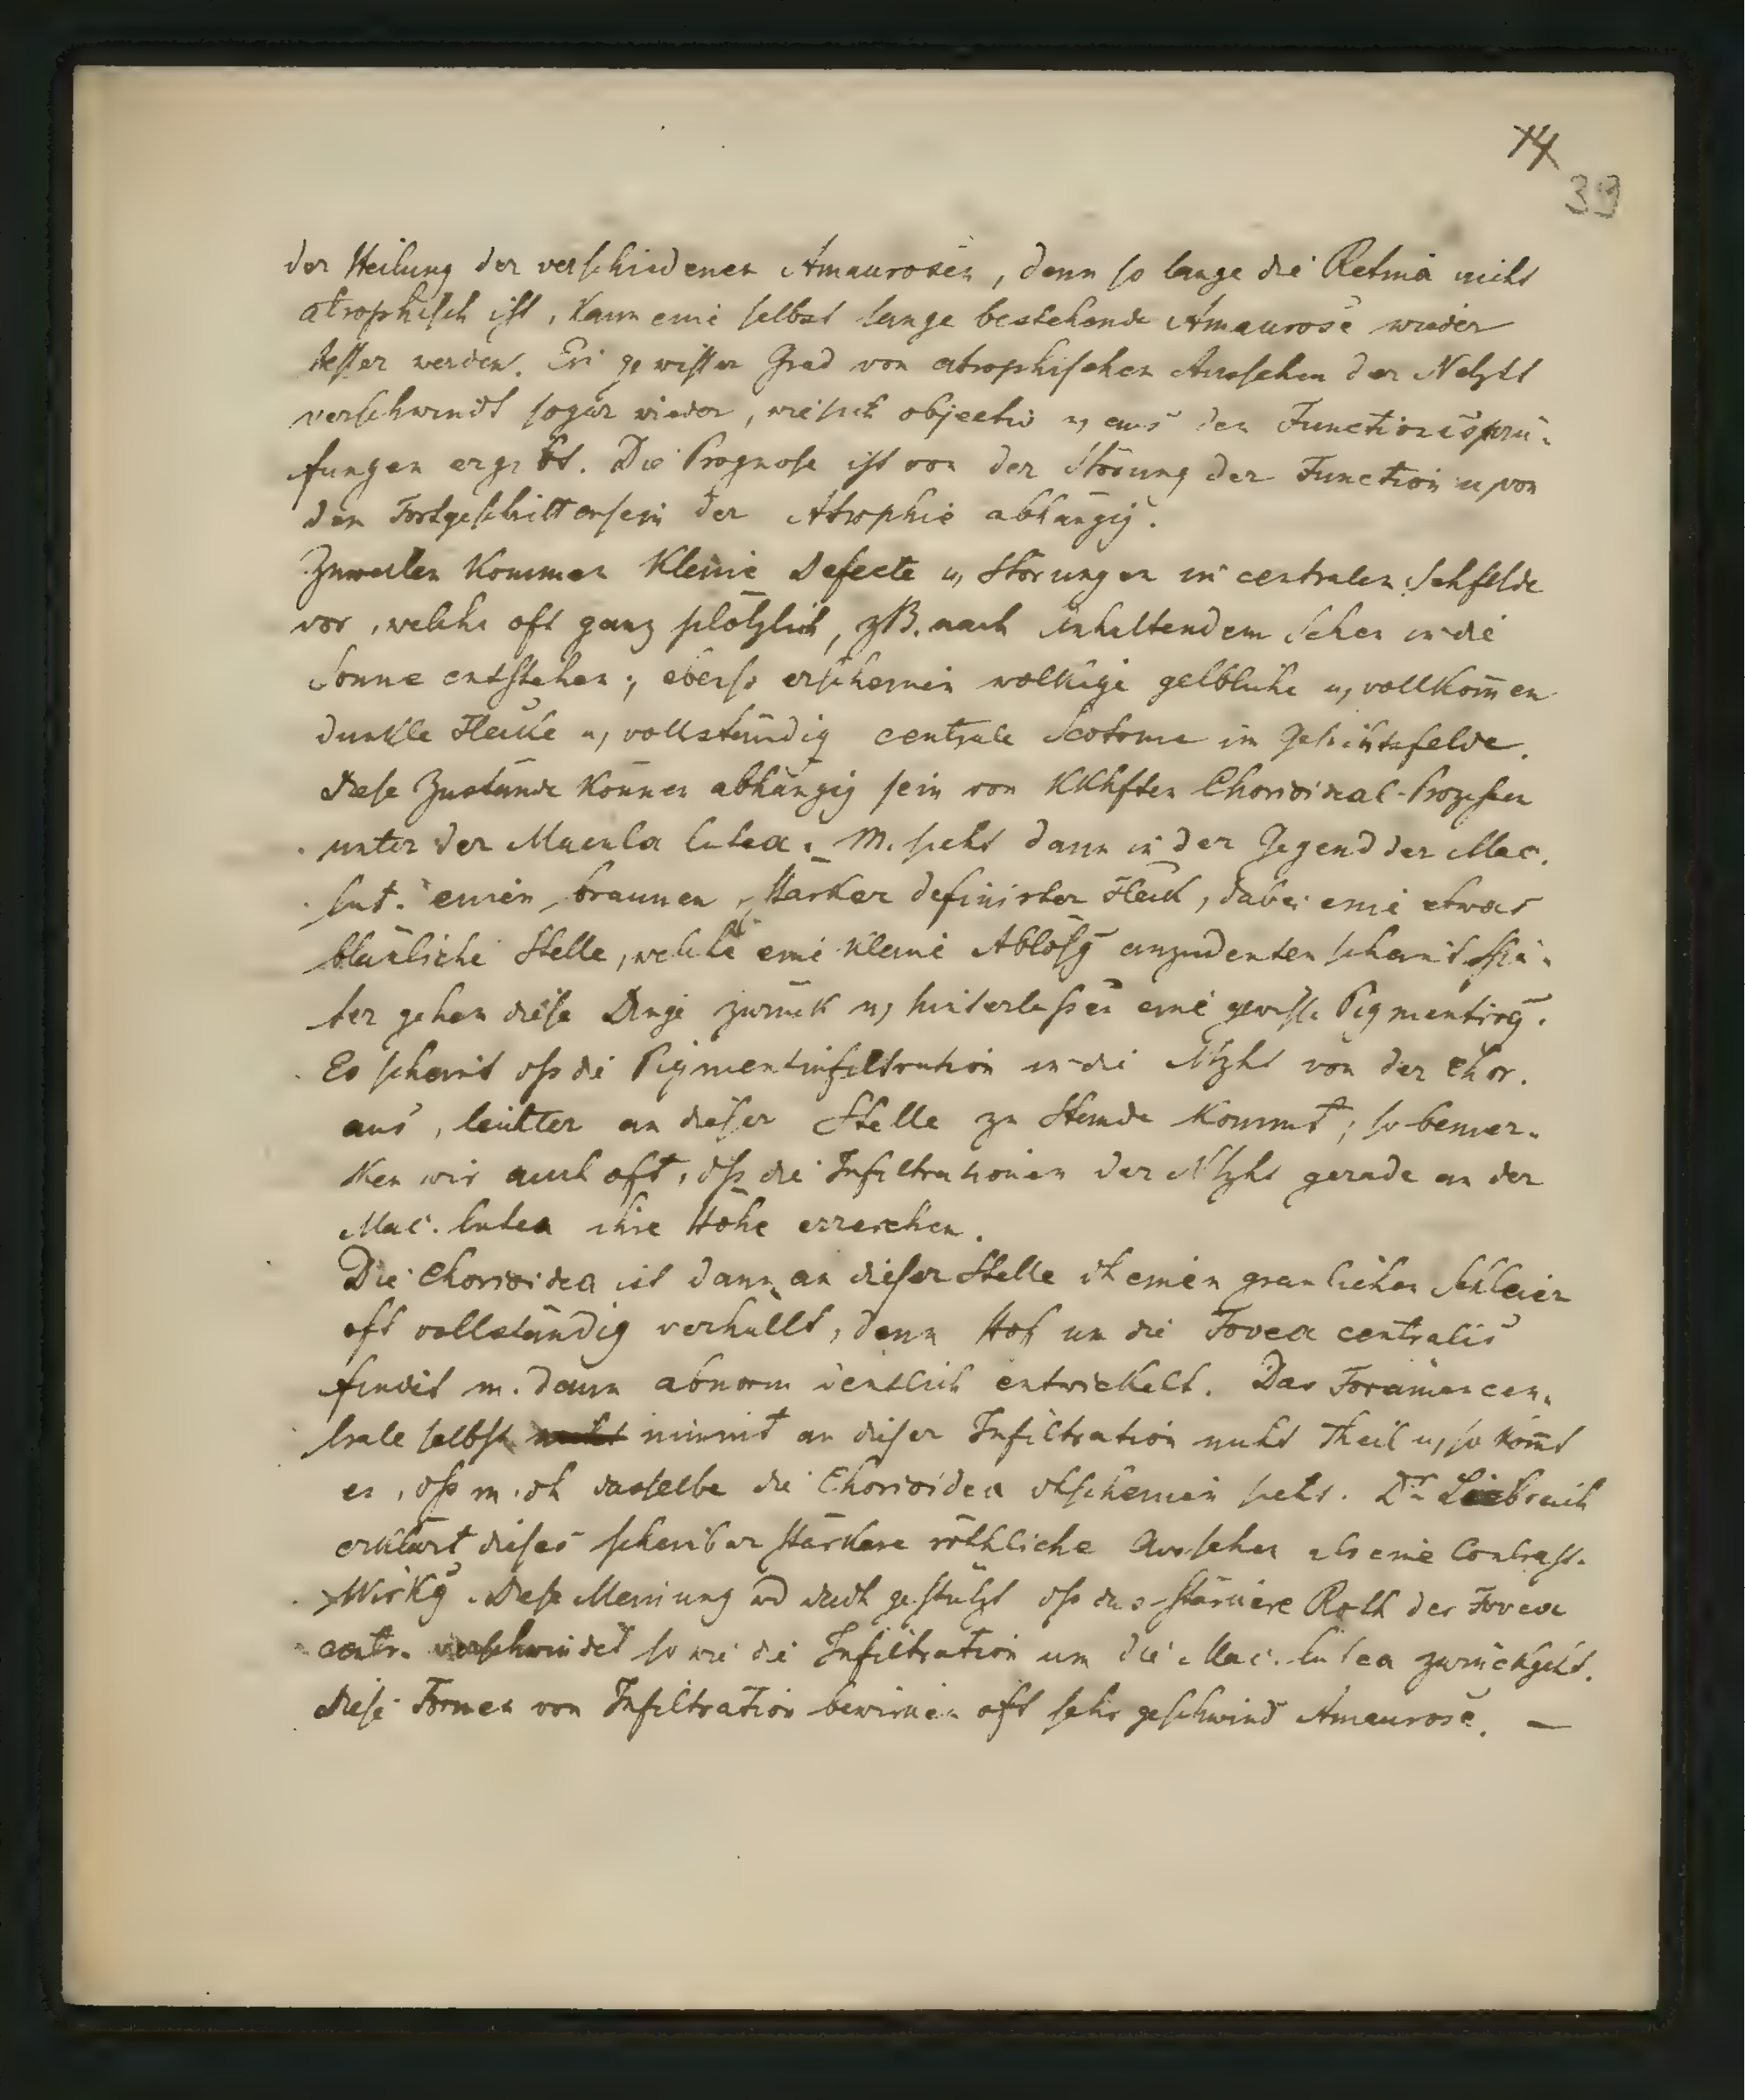 14
39
der Heilung der verschiedenen Amaurosen, denn so lange die Retina nicht
atrophisch ist, kann eine selbst lange bestehende Amaurose wieder
besser werden. Ein gewisser Grad von atrophischen Aussehen der Netzht
verschwindt sogar wieder, wie sich objectiv u, aus den Functionsprü-
fungen ergibt. Die Prognose ist von der Störung der Function u, von
dem Fortgeschrittensein der Atrophie abhängig.
Zuweilen kommen kleine Defecte u, Störungen im centralen Sehfelde
vor, welche oft ganz plötzlich, zB. nach anhaltendem Sehen in die
Sonne entstehen; ebenso erscheinen wolkige gelbliche u, vollkom̄en
dunkle Flecke u, vollständig centrale Scotome im Gesichtsfelde.
Diese Zustände können abhängig sein von kkhften Chorioideal-Prozessen
unter der Macula lutea. M. sieht dann in der Gegend der Mac.
lut. einen braunen, stärker definirten Fleck, dabei eine etwas
bläuliche Stelle, welche eine kleine Ablösg anzudeuten scheint. Spä-
ter gehen diese Dinge zurück u, hinterlassen eine gewisse Pigmentirg.
Es scheint dſs die Pigmentinfiltration in die Ntzht von der Chor.
aus, leichter an dieser Stelle zu Stande kommt; so bemer-
ken wir auch oft, dſs die Infiltrationen der Ntzht gerade an der
Mac. lutea ihre Höhe erreichen.
Die Chorioidea ist dann an dieser Stelle dh einen graulichen Schleier
oft vollständig verhüllt, denn Hof um die Fovea centralis
findet m. dann abnorm deutlich entwickelt. Das Foramen cen-
trale selbst nimmt an dieser Infiltration nicht Theil u, so kom̄t
es, dſs m. dh dasselbe die Chorioidea dhscheinen sieht. Dr Liebreich
erklärt dieses scheinbar stärkere röthliche Aussehen als eine Contrast-
Wirkg. Diese Meinung wd dadh gestützt dſs das stärkere Roth der Fovea
centr. verschwindet so wie die Infiltration um die Mac. lutea zurückgeht.
Diese Formen von Infiltration bewirken oft sehr geschwind Amaurose. —